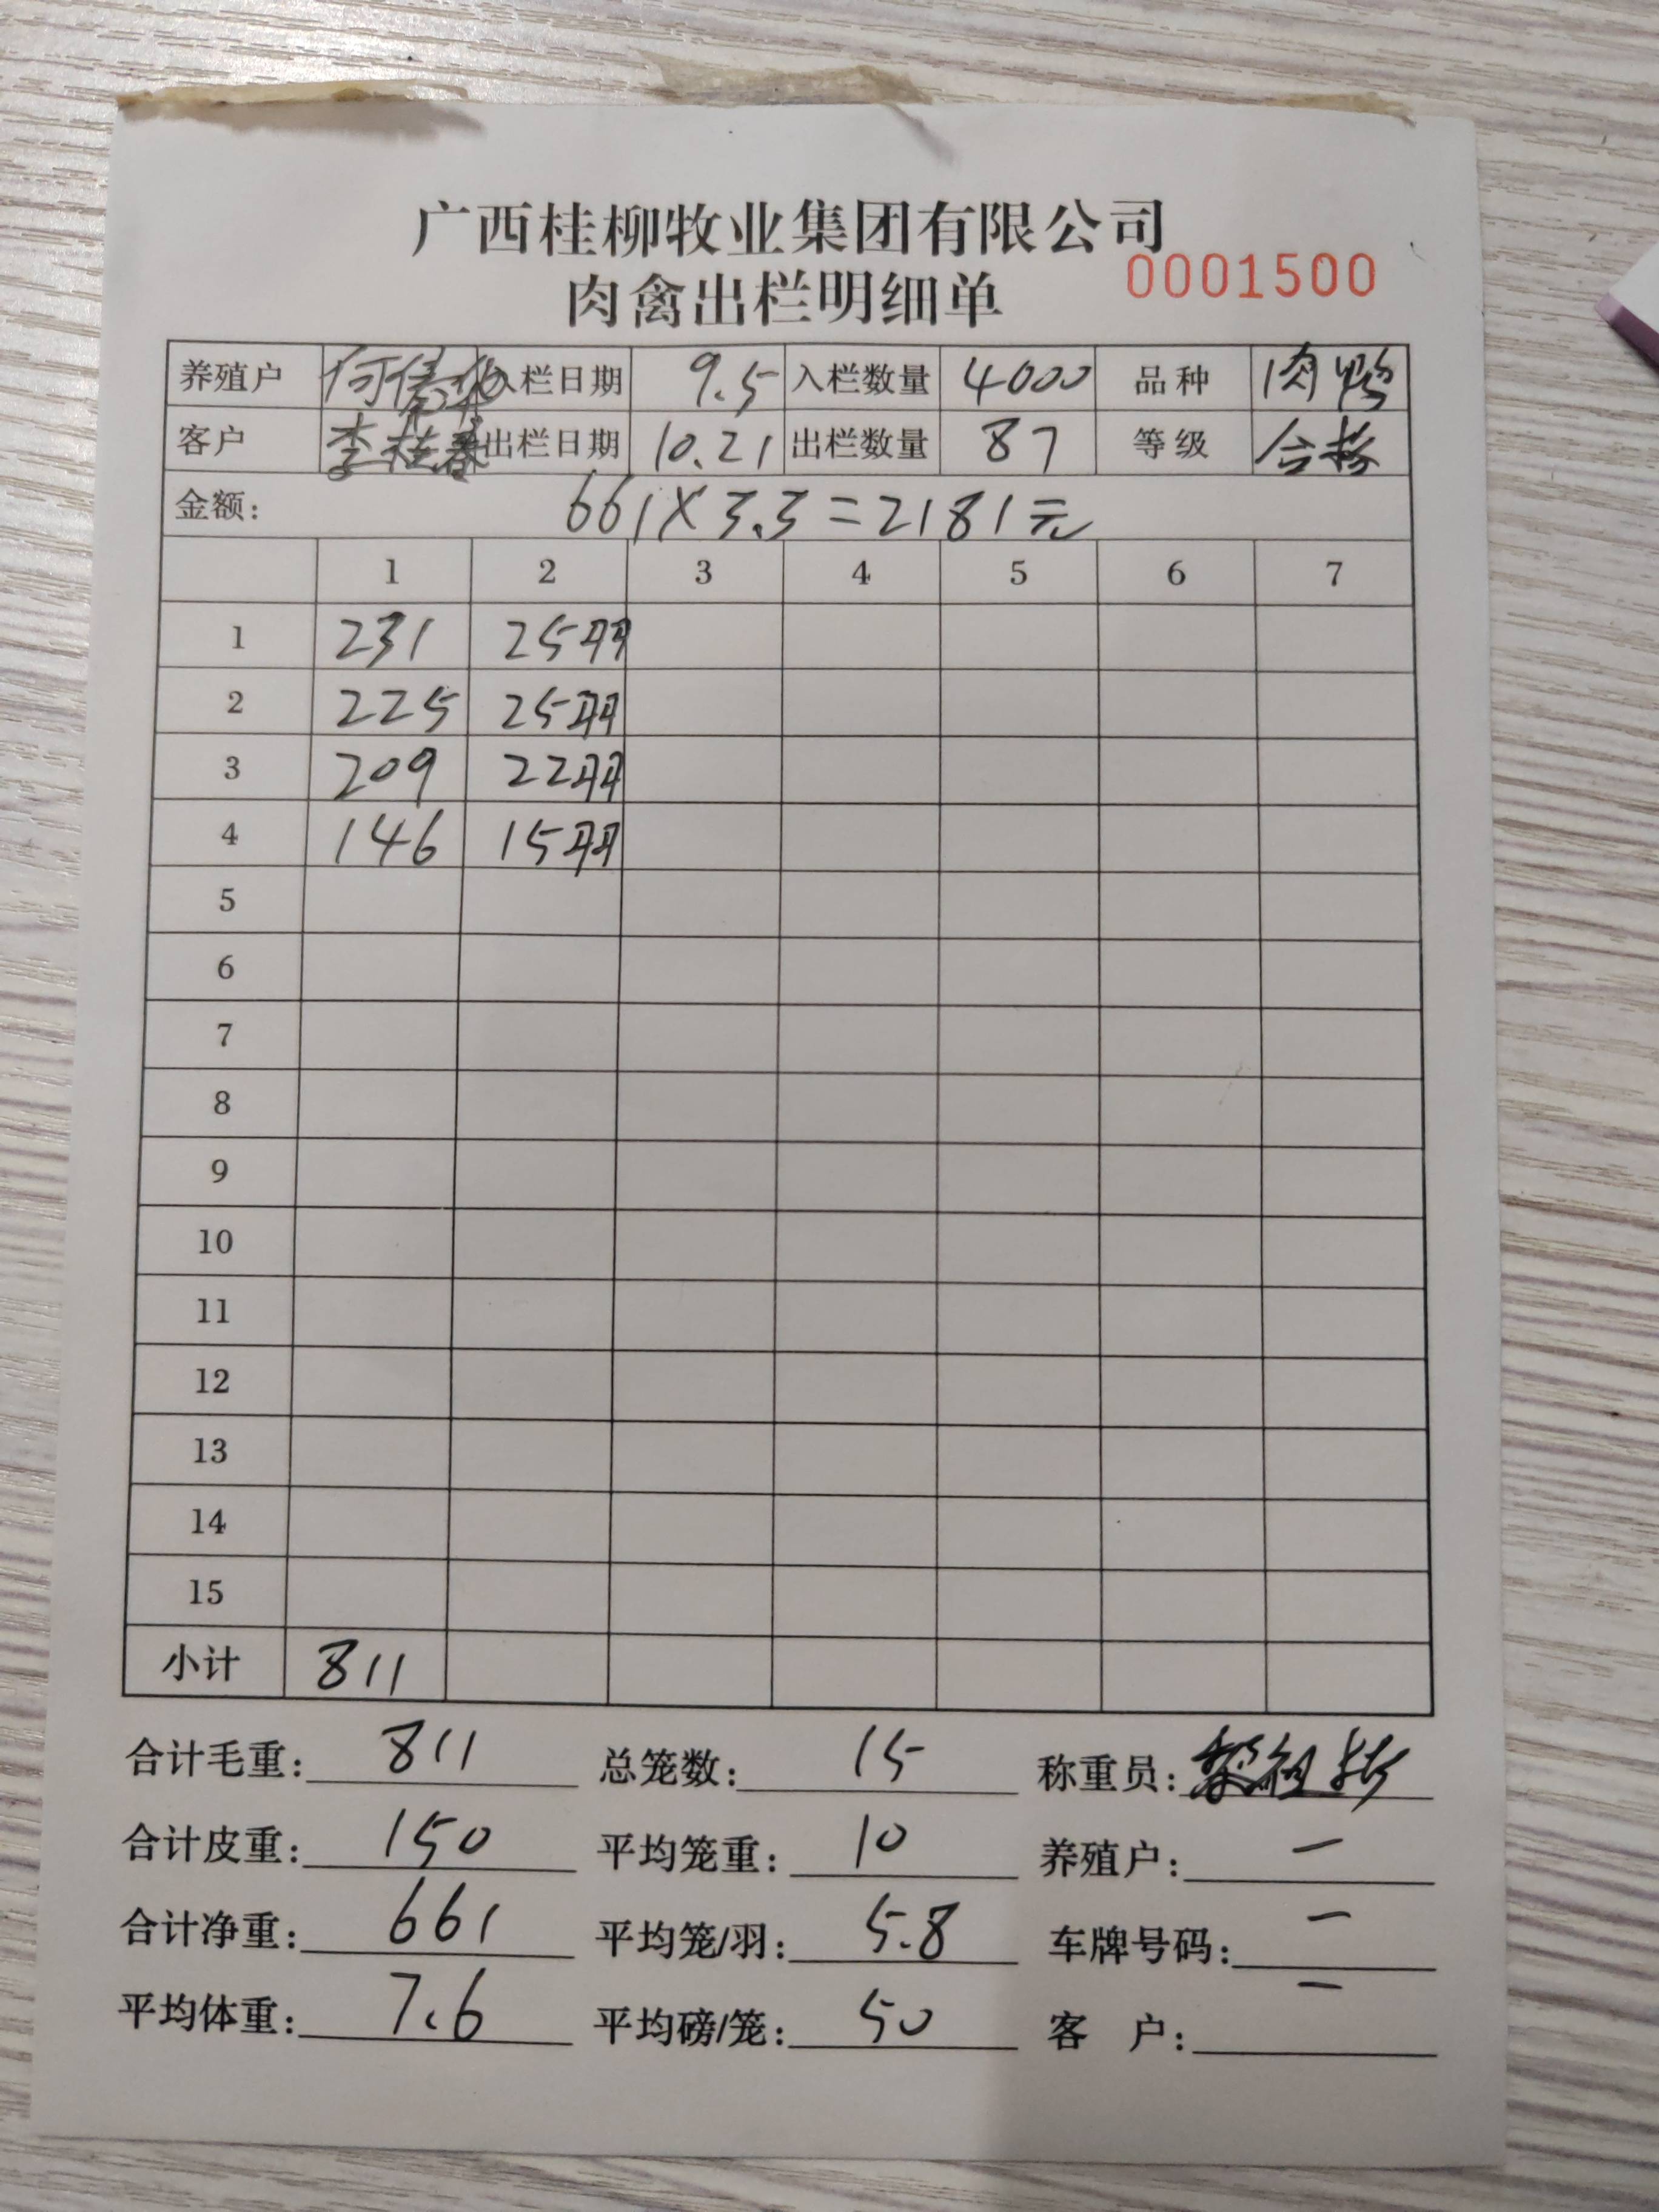 广西桂柳牧业集团有限公司
肉禽出栏明细单 0001500
养殖户 何 入栏日期 9.5 入栏数量 4000 品种 肉鸭
客户 李桂春 出栏日期 10.21 出栏数量 87 等级 合格
金额: 661X3.3=2181元
1 2 3 4 5 6 7
1 231 25羽
2 225 25羽
3 209 22羽
4 146 15羽
5
6
7
8
9
10
11
12
13
14
15
小计 811
合计毛重: 811 总笼数: 15 称重员:
合计皮重: 150 平均笼重: 10 养殖户: 一
合计净重: 661 平均笼/羽: 5.8 车牌号码: 一
平均体重: 7.6 平均磅/笼: 50 客 户: 一